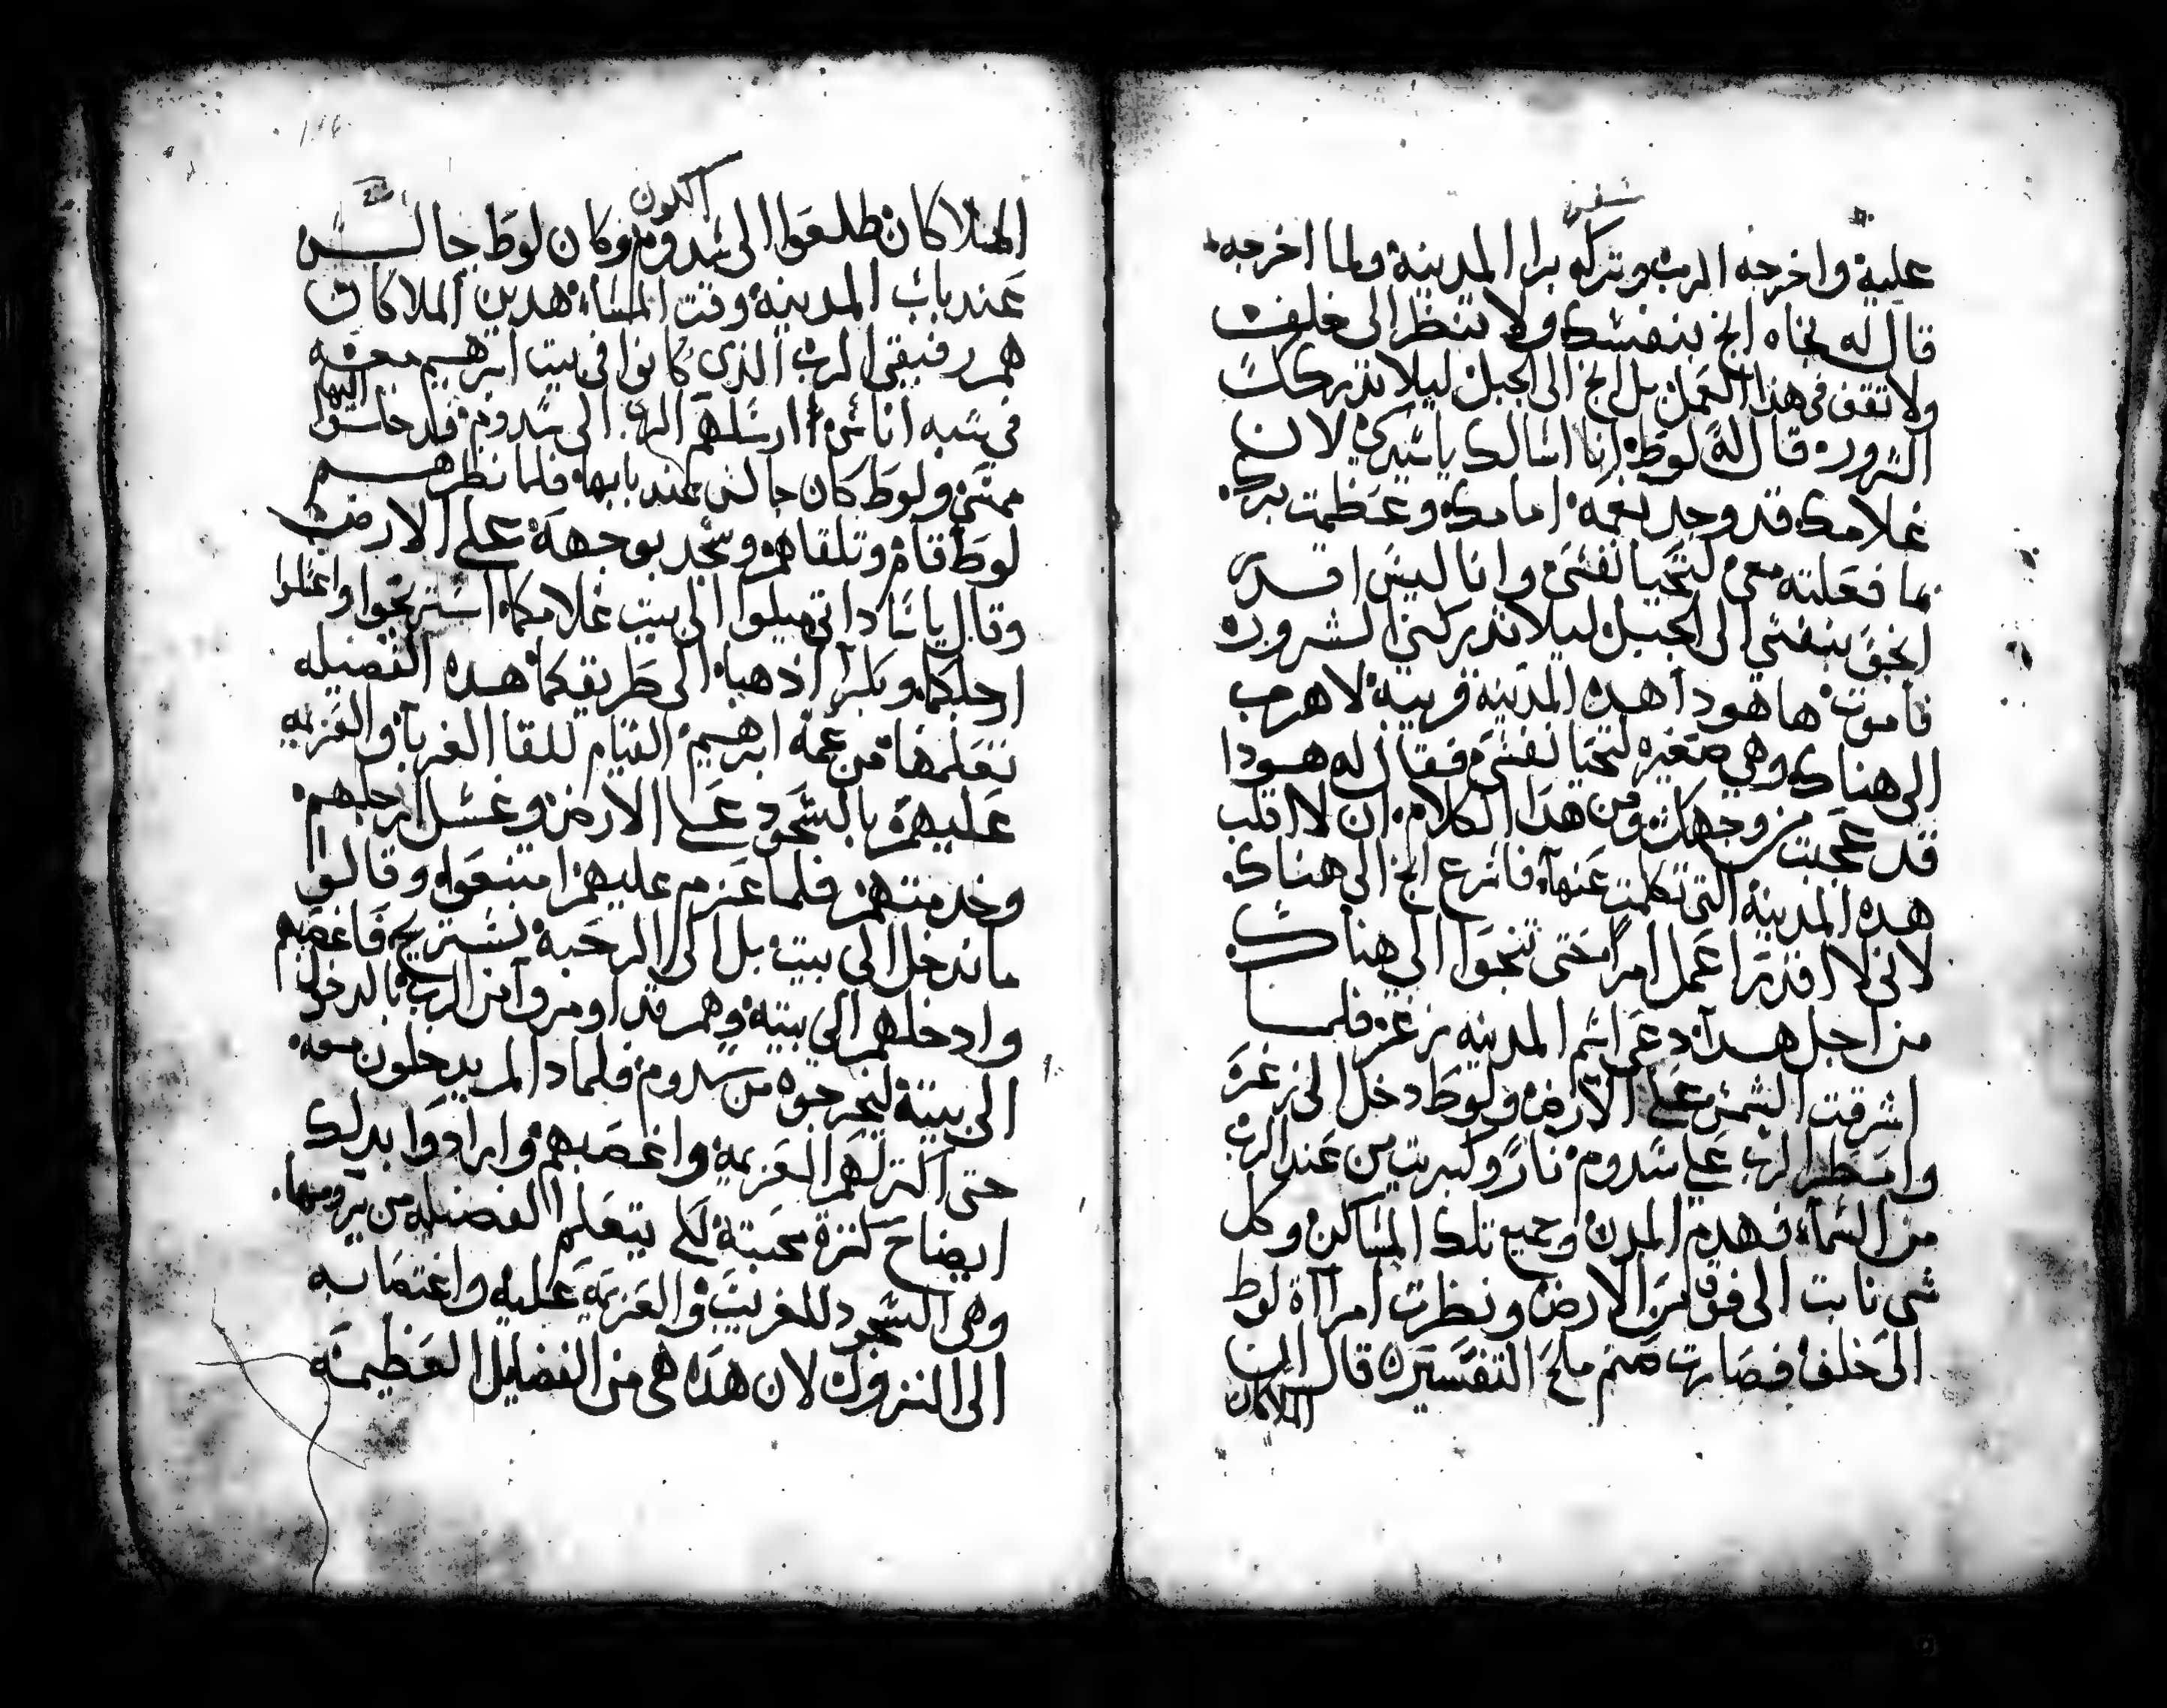 سفر
عليه واخرجه الرب وتركه برا المدينة ولما اخرجه
قال له نجاه انج بنفسك ولا تنظر الى خلف
ولا تقف في هذا العمل بل انج الى الجبل ليلا تدركك
الشرور قال له لوط انا اسالك ياسيدي لان
غلامك قد وجد نعمه امامك وعظمت برك
ما فعلته معي لتحيا نفسي وانا ليس اقدر
انجو بنفسي الى الجبل ليلا تدركني الشرور
فاموت ها هودا هده المدينه قريبه لاهرب
الى هناك وهي صغيره لتحيا نفسي فقال له هودا
قد عجبت من وجهك ومن هدا الكلام ان لا اقلب
هده المدينة التي تكلمت عنها فاسرع انج الى هناك
لاني لا اقدر اعمل امرا حتى تنجوا الى هناك
من اجل هدا دعى اسم المدينه زغر فلما
اشرقت الشمس على الارض ولوط دخل الى زغر
وامطر الرب على سدوم نار وكبريت من عند الرب
من السماء فهدم المدن وجميع تلك المساكن وكل
شى نابت الى فوق من الارض ونظرت امراة لوط
الى خلف فصارت صنم ملح التفسير قال ان
الملاكان
الكون
الملاكان طلعوا الى سدوم وكان لوط جالس
عند باب المدينة وقت المساء هدين الملاكان
هم رفيقي الرب الذي كانوا في بيت ابرهيم معه
في شبه اناس ارسلهم الرب الى سدوم فدخلوا اليها
ممشي ولوط كان جالس عند بابها فلما نظرهم
لوط قام وتلقاهم وسجد بوجهه على الارض
وقال ياساداتي ميلوا الى بيت غلامكما استريحوا واغسلوا
ارجلكما وبكرا اذهبا الى طريقكما هده الفضيله
تعلمها من عمه ابرهيم القيام للقا الغربا والعزيمه
عليهم بالسجود على الارض وغسل ارجلهم
وخدمتهم فلما عزم عليهم امتنعوا وقالوا
ما ندخل الى بيت بل الى الرحبة نستريح فاغصبهم
وادخلهم الى بيته وهم قد اومروا من الرب بالدخول
الى بيته ليخرجوه من سدوم فلماد الم يدخلون معه
حتى اكتر لهم العزيمه واغصبهم وارادوا بدلك
ايضاح كترة محبته لكي يتعلم الفضيله من يرومها
وهي السجود للغريب والعزيمه عليه واغتصابه
الى النزول لان هده هي من الفضايل العظيمه